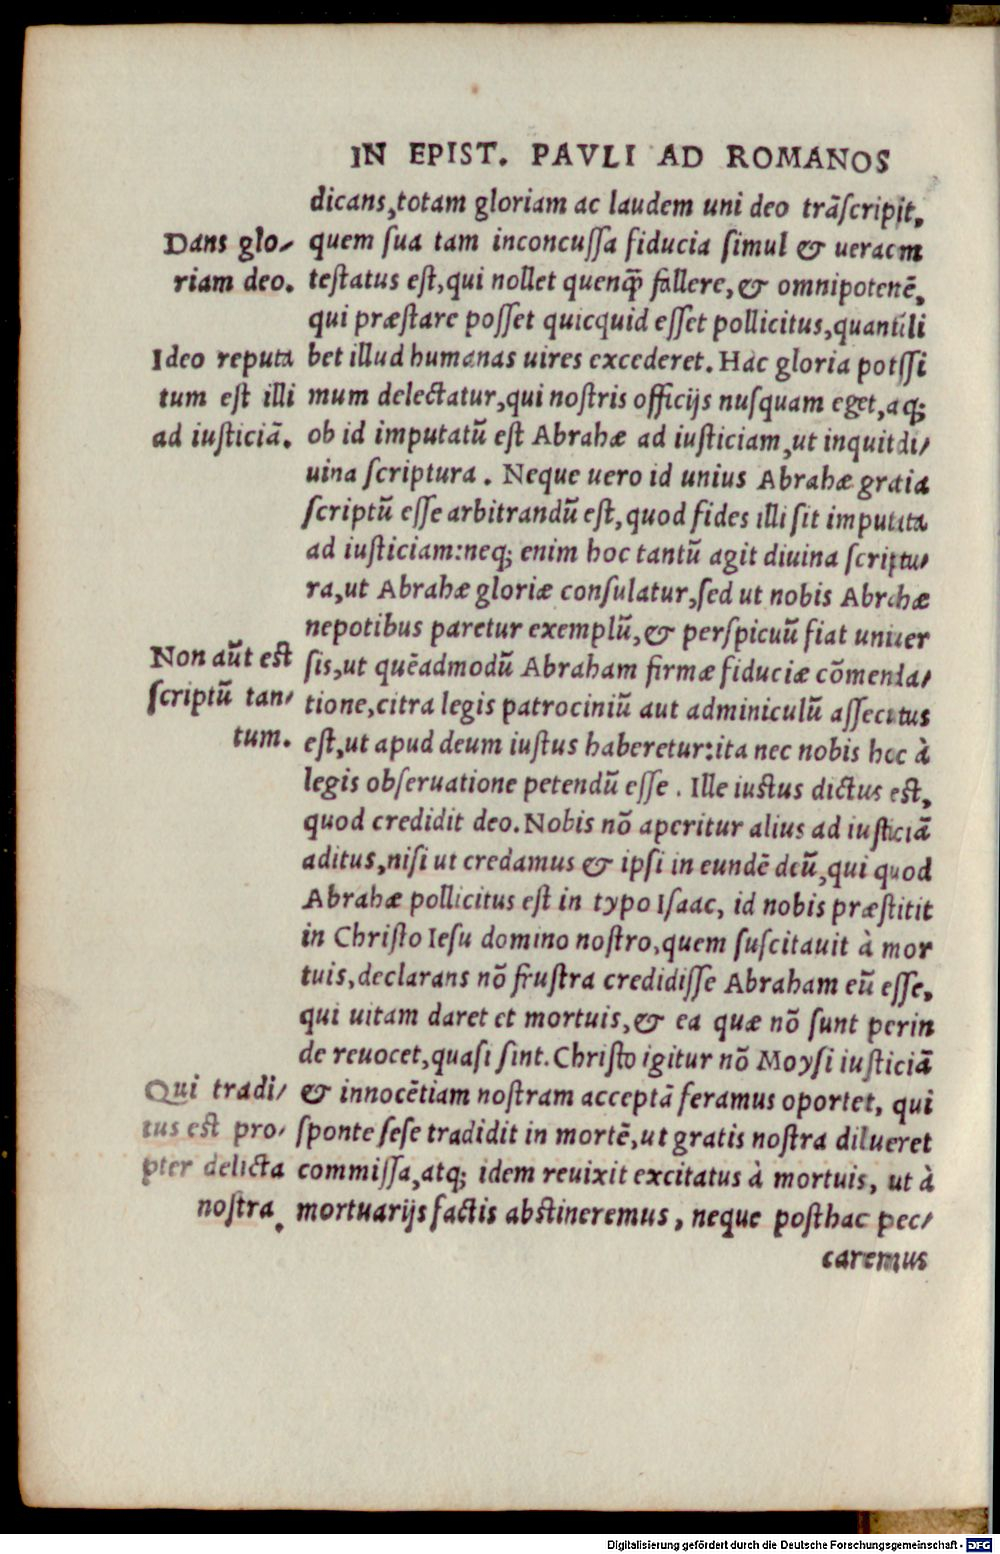 IN EPIST. PAVLI AD ROMANOS
dicans, totam gloriam ac laudem uni deo trãſcripſit,
Dans glo-
riam deo.
quem ſua tam inconcuſſa fiducia ſimul & ueracem
teſtatus eſt, qui nollet quenq̃ fallere, & omnipotenẽ,
qui præſtare poſſet quicquid eſſet pollicitus, quantũli
Ideo reputa
tum eſt illi
ad iuſticiã.
bet illud humanas uires excederet. Hac gloria potiſſi
mum delectatur, qui noſtris officijs nuſquam eget, aq;
ob id imputatũ eſt Abrahæ ad iuſticiam, ut inquit di-
uina ſcriptura. Neque uero id unius Abrahæ gratia
ſcriptũ eſſe arbitrandũ eſt, quod fides illi ſit imputata
ad iuſticiam: neq; enim hoc tantũ agit diuina ſcriptu-
ra, ut Abrahæ gloriæ conſulatur, ſed ut nobis Abrahæ
nepotibus paretur exemplũ, & perſpicuũ fiat uniuer
Non aũt eſt
ſcriptũ tan-
tum.
ſis, ut quẽadmodũ Abraham firmæ fiduciæ cõmenda-
tione, citra legis patrociniũ aut adminiculũ aſſecutus
eſt, ut apud deum iuſtus haberetur: ita nec nobis hoc à
legis obſeruatione petendũ eſſe. Ille iuſtus dictus eſt,
quod credidit deo. Nobis nõ aperitur alius ad iuſticiã
aditus, niſi ut credamus & ipſi in eundẽ deũ, qui quod
Abrahæ pollicitus eſt in typo Iſaac, id nobis præſtitit
in Chriſto Ieſu domino noſtro, quem ſuſcitauit à mor
tuis, declarans nõ fruſtra credidiſſe Abraham eũ eſſe,
qui uitam daret et mortuis, & ea quæ nõ ſunt perin
de reuocet, quaſi ſint. Chriſto igitur nõ Moyſi iuſticiã
Qui tradi-
tus eſt pro-
pter delicta
noſtra.
& innocẽtiam noſtram acceptã feramus oportet, qui
ſponte ſeſe tradidit in mortẽ, ut gratis noſtra dilueret
commiſſa, atq; idem reuixit excitatus à mortuis, ut à
mortuarijs factis abſtineremus, neque poſthac pec-
caremus
Digitalisierung gefördert durch die Deutsche Forschungsgemeinschaft - DFG